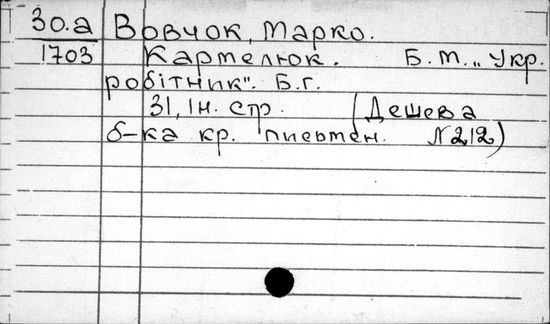 30.а Вовчок, Марко.
1703 Кармелюк. Б.м. „Укр.
робітник". Б.г.
31, 1н. стр. (Дешева
б-ка кр. письмен. №212)